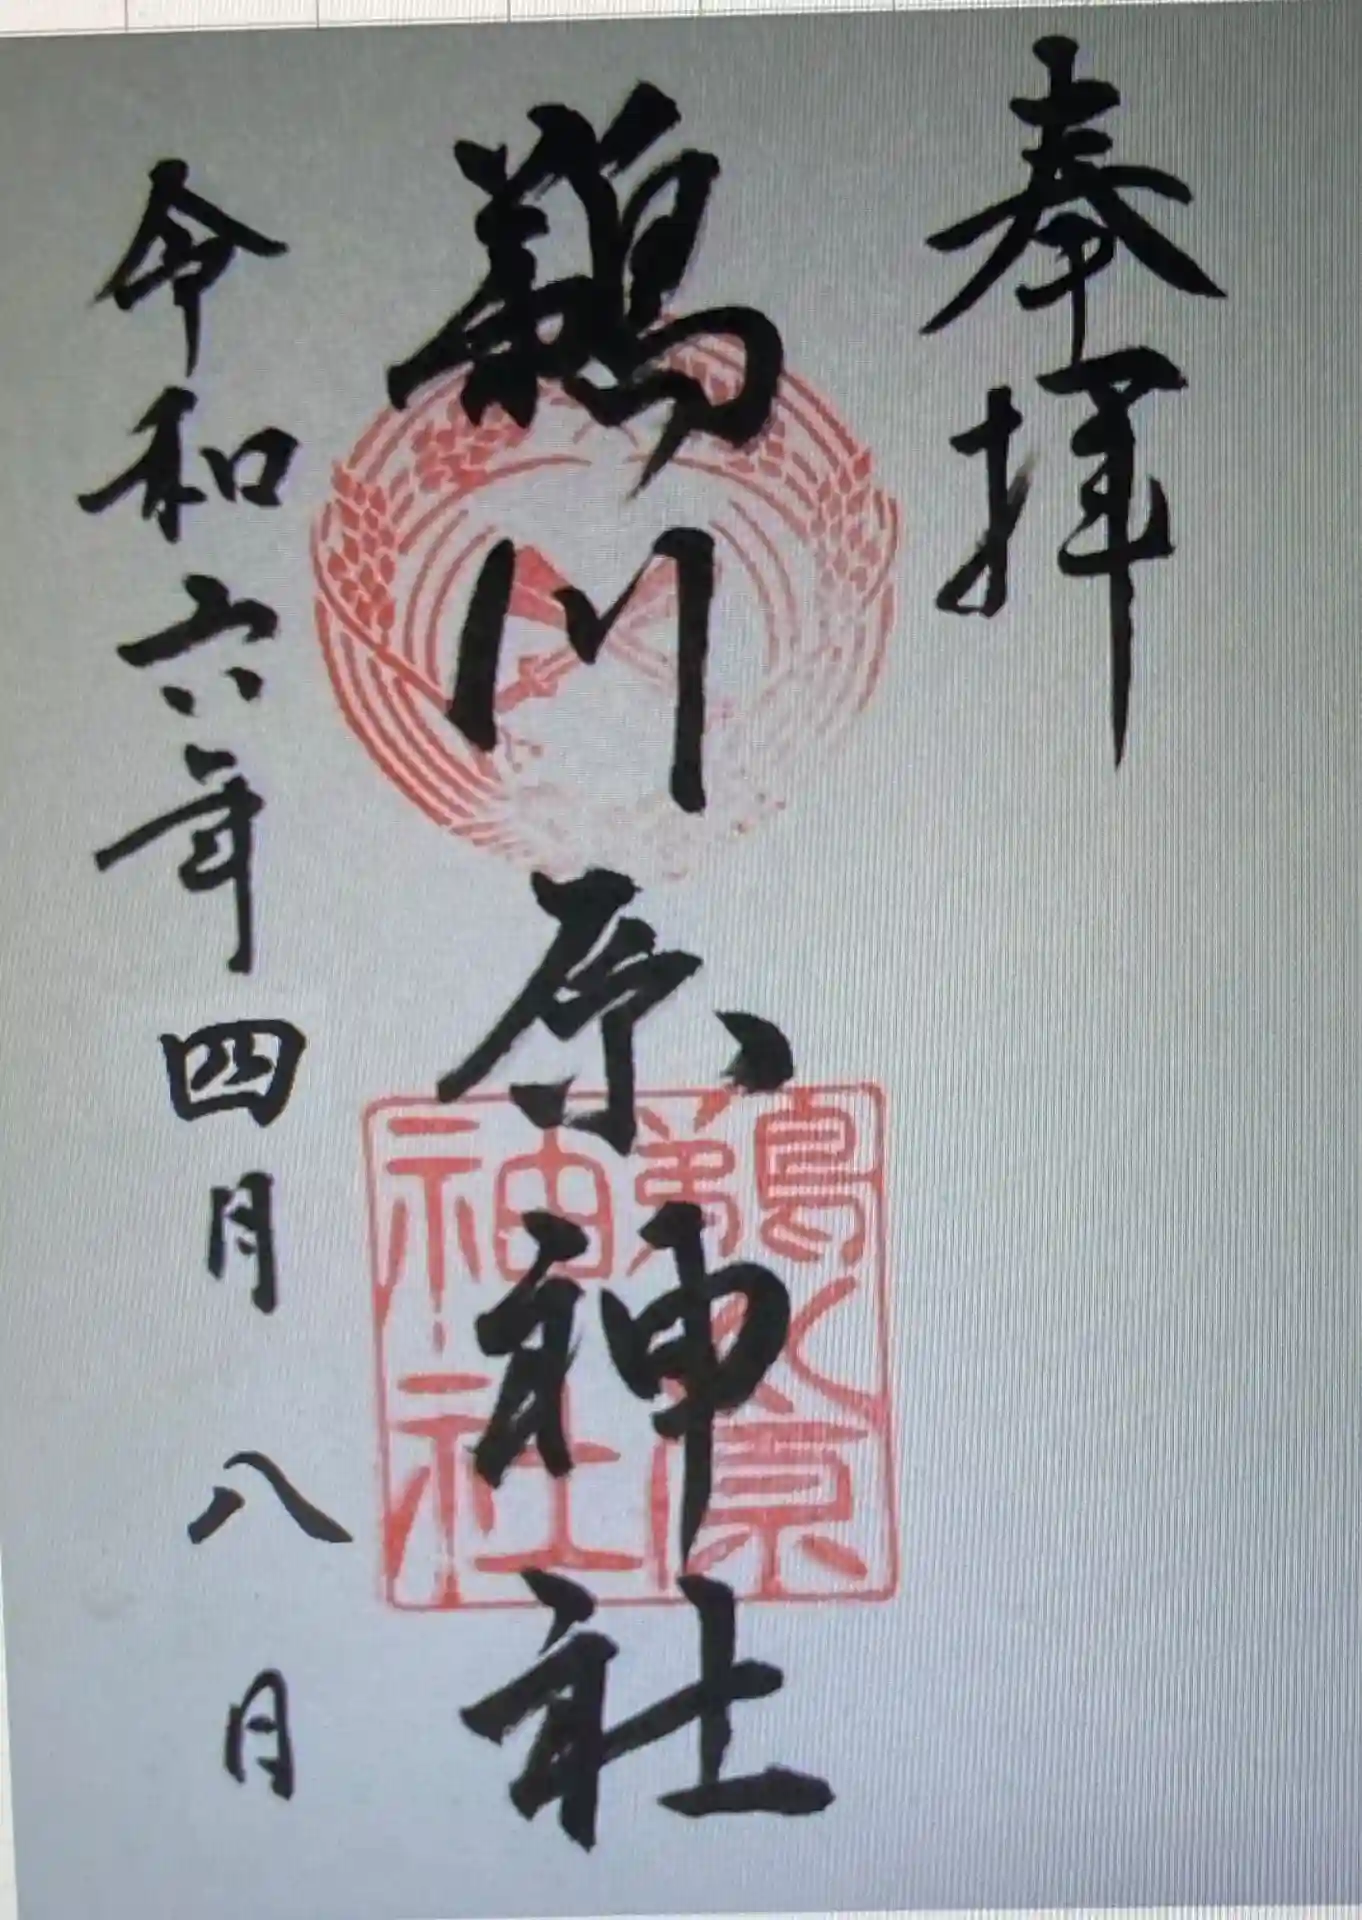 奉拝
鵜川原神社
令和六年四月八日
鵜川原
神社